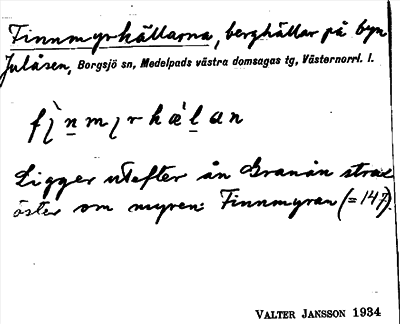 Finnmyrhällarna, berghällar på byn
Julåsen, Borgsjö sn, Medelpads västra domsagas tg, Västernorrl. l.
Ligger utefter ån Granån strax
öster om myren: Finnmyran (= 147).
VALTER JANSSON 1934